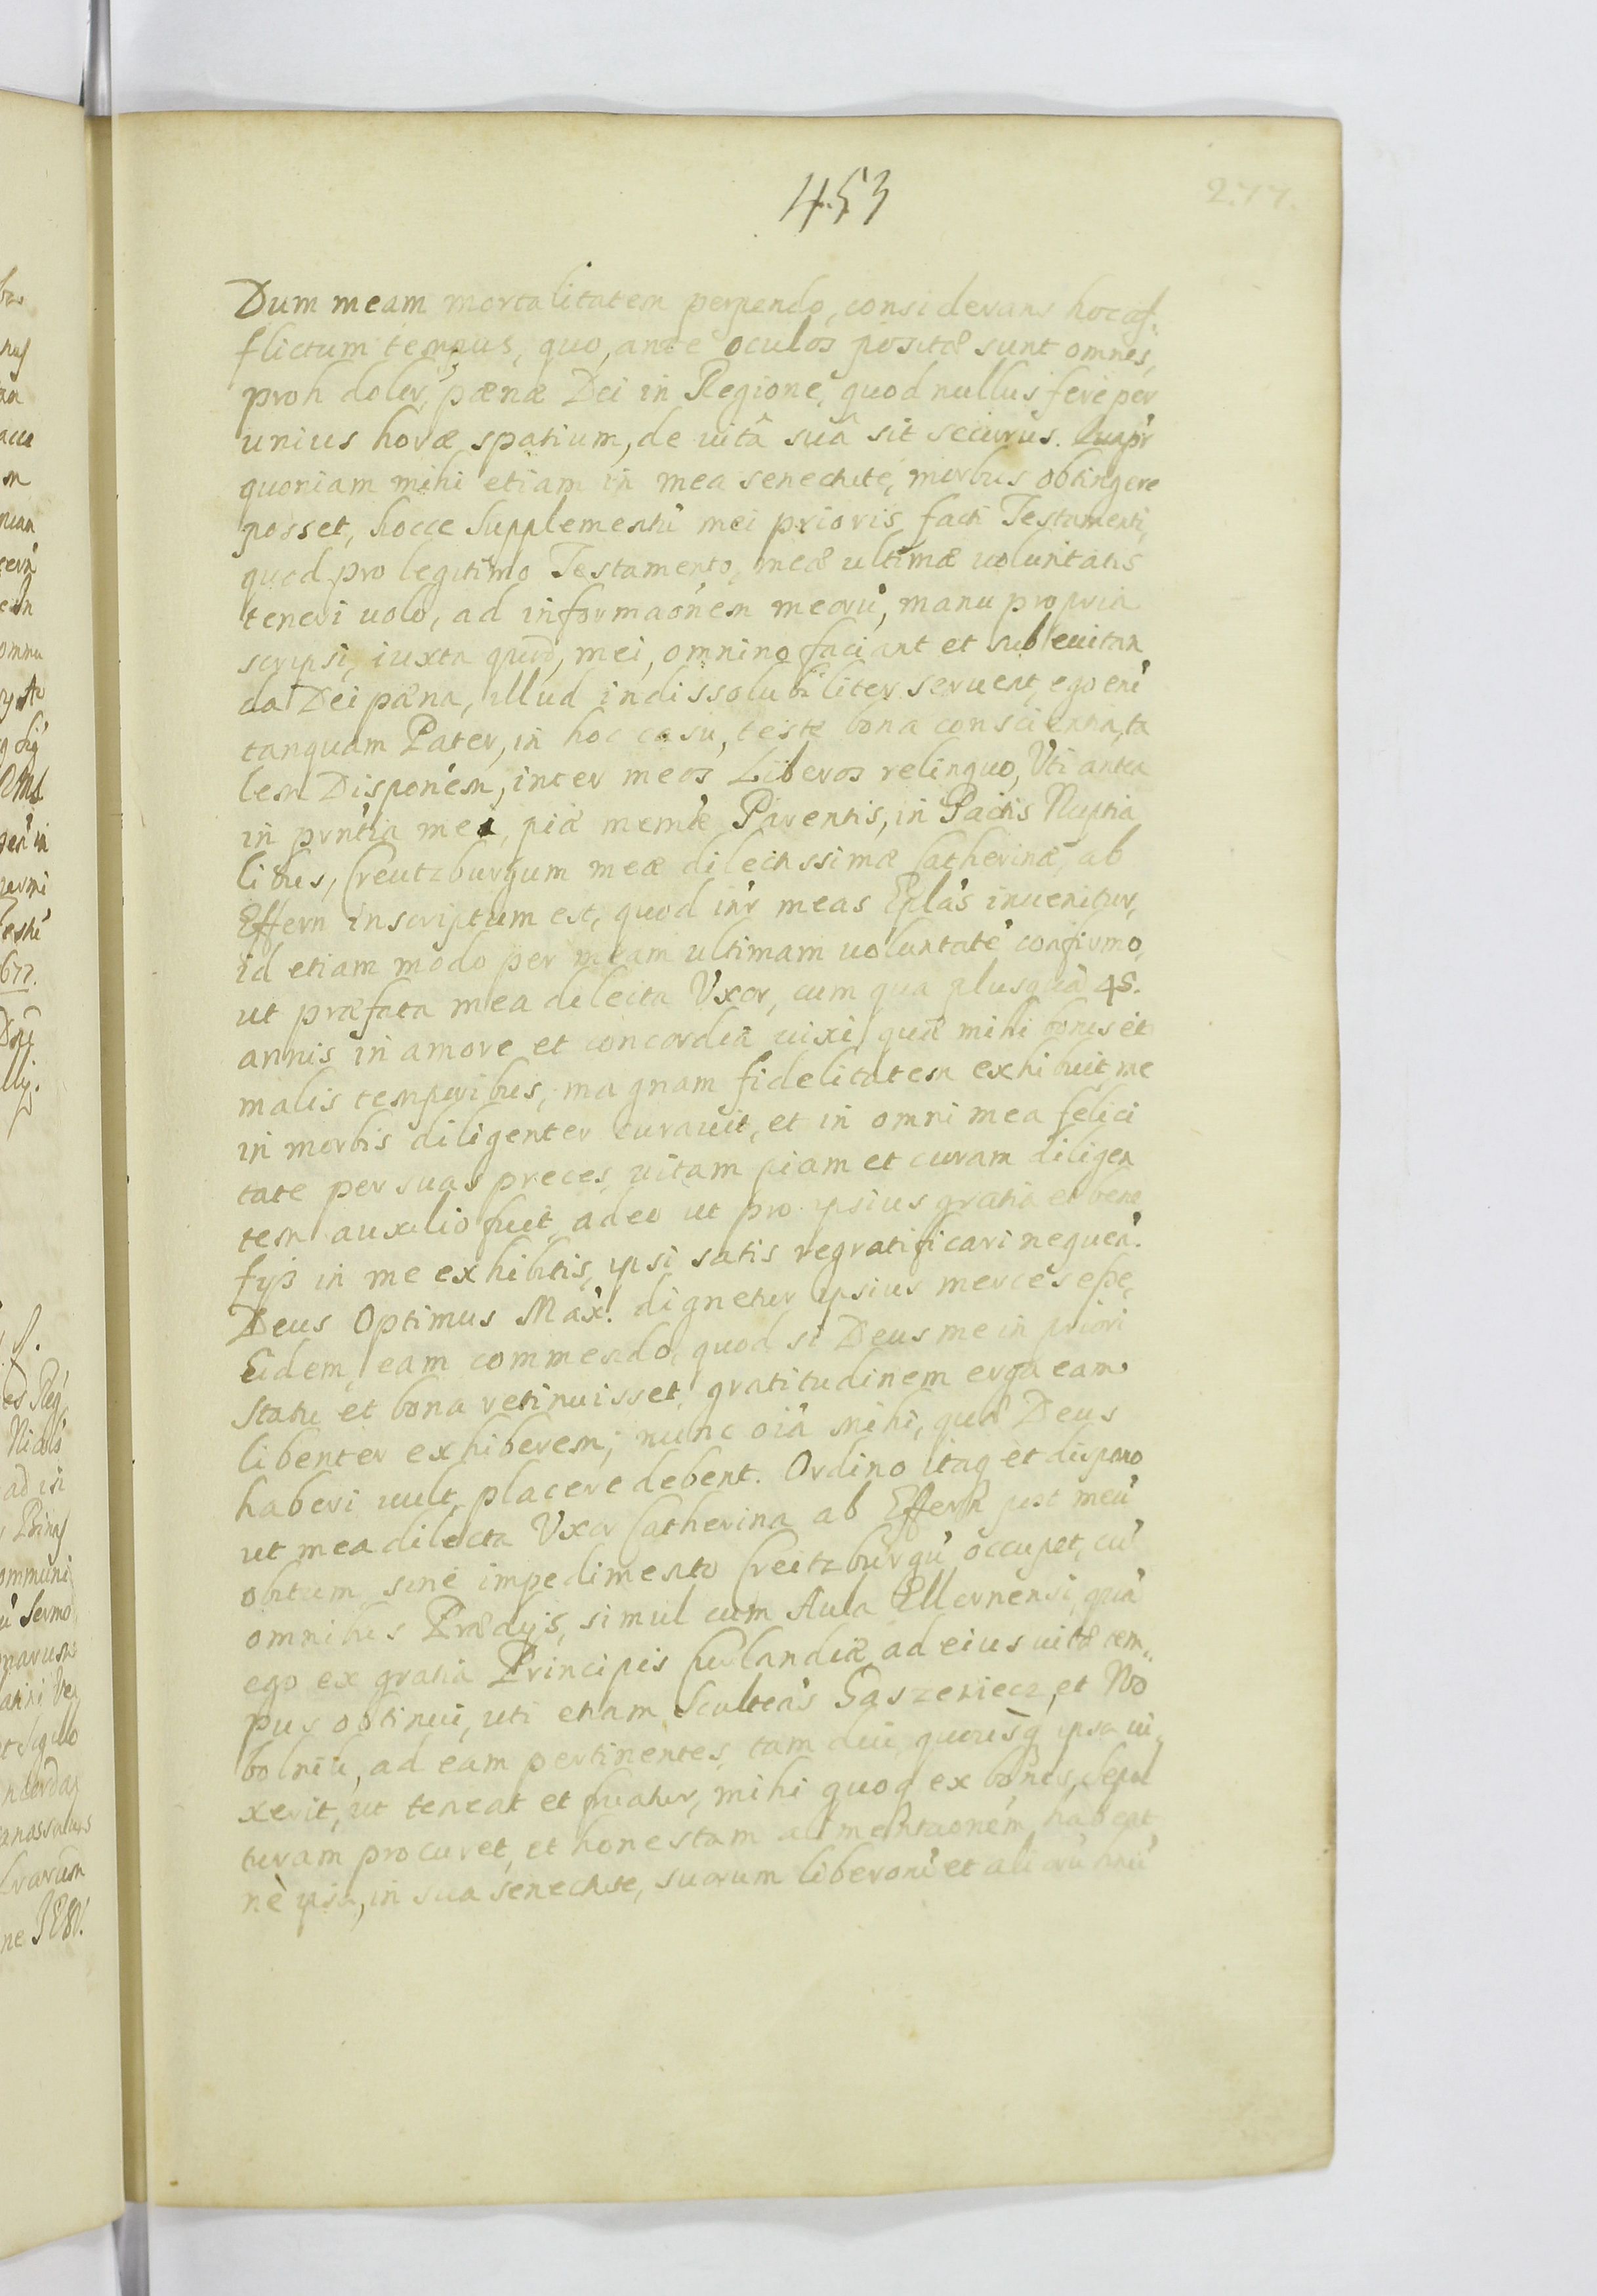 453
277.
Dum meam mortalitatem perpendo, considerans hoc af¬
flictum tempus, quo, ante oculos positæ sunt omnes,
proh dolor, pænæ Dei in Regione, quod nullus fere per
unius horæ spatium, de uitâ suâ sit securus. Quapr
quoniam mihi etiam in mea senectute, morbus obtingere
posset, hocce Supplementũ mei prioris facti Testamenti,
quod pro legitimo Testamento, meæ ultimæ uoluntatis
teneri uolo, ad informaõnem meorũ, manu propria
scripsi, iuxta quod, mei, omnino faciant et sub euitan
da Dei pæna, illud indissolubiliter seruent, ego eni
tanquam Pater, in hoc casu, teste bona conscientia, ta
lem Disponem, inter meos Liberos relinquo, Uti antea
in prntia mei, piæ memæ Parentis, in Pactis Nuptia
libus, Creutzburgum meæ dilectissimæ Catherinæ, ab
Effern inscriptum est, quod inr meas Eplas inuenitur,
id etiam modo per meam ultimam uoluntatẽ confirmo,
ut præfata mea dilecta Uxor, cum qua plusquã 45.
annis in amore et concordia uixi, quæ mihi bonis et
malis temporibus, magnam fidelitatem exhibuit me
in morbis diligenter curauit, et in omni mea felici
tate per suas preces, uitam piam et curam diligen
tem auxilio fuit, adeo ut pro ipsius gratia et bene
fijs in me exhibitis, ipsi satis regratificari nequeã.
Deus Optimus Max: dignetur ipsius merces eße,
Eidem, eam commendo, quod si Deus me in priori
statu et bona retinuisset, gratitudinem erga eam
libenter exhiberem; nunc oia mihi, quæ Deus
haberi uult, placere debent. Ordino itaq et dispono
ut mea dilecta Uxor Catherina ab Effern post meũ
obitum sine impedimento Creitzburgũ occupet, cũ
omnibus Prædijs, simul cum Aula Ellernensi, quã
ego ex gratia Principis Curlandiæ ad eius uitæ tem¬
pus obtinui, uti etiam Scultens Gaszeniecz, et No
bolnik, ad eam pertinentes, tam diu, quousq ipsa ui¬
xerit, ut teneat et fruatur, mihi quoq ex bonis, sepul
turam procuret, et honestam alimentaonem habeat
nè ipsa, in sua senectute, suorum liberorũ et aliorũ